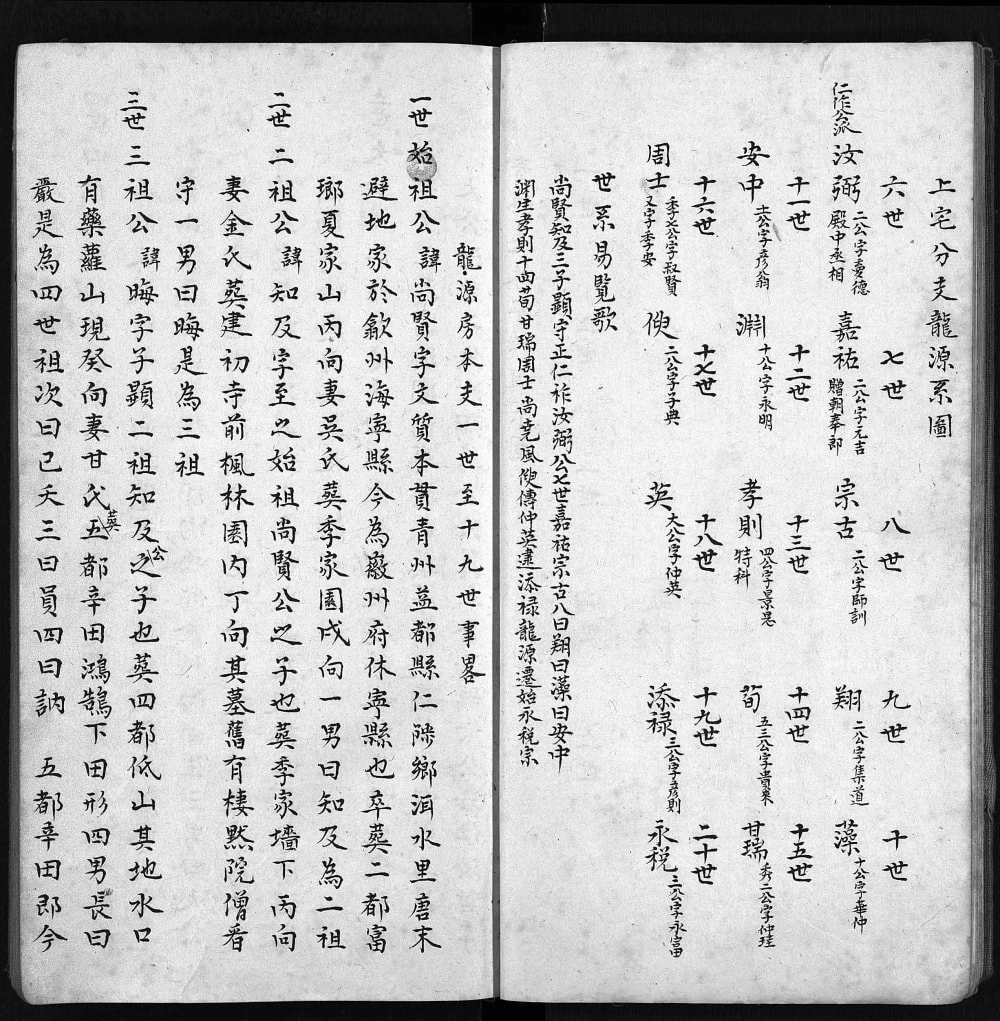 上宅分支龍源系圖
六世 七世 八世 九世 十世
仁祚公派 汝弼 二公字憂德 殿中丞相 嘉祐 二公字元吉 贈朝奉郎 宗古 二公字師訓 翔 二公字集道 藻 十公字華仲
十一世 十二世 十三世 十四世 十五世
安中 十一公字彥翁 淵 十公字永明 孝則 四公字景思 特科 荀 五三公字貴來 甘瑞 秀二公字仲珪
十六世 十七世 十八世 十九世 二十世
周士 季六公字叔賢 又字季安 傁 二公字子典 英 大公字仲英 添祿 三公字彥則 永稅 三公字永富
世系易覽歌
尚賢知及三子顯守正仁祚汝弼公七世嘉祐宗古八曰翔曰藻曰安中
淵生孝則十四荀甘瑞周士尚堯風傁傳仲英建添祿龍源遷始永稅宗
龍源房本支一世至十九世事畧
一世始祖公諱尚賢字文質本貫青州益都縣仁陟鄉洱水里唐末
避地家於歙州海寧縣今為徽州府休寧縣也卒葬二都富
瑯夏家山丙向妻吳氏葬季家園戌向一男曰知及為二祖
二世二祖公諱知及字至之始祖尚賢公之子也葬季家墻下丙向
妻金氏葬建初寺前楓林園內丁向其墓舊有棲默院僧看
守一男曰晦是為三祖
三世三祖公諱晦字子顯二祖知及公之子也葬四都低山其地水口
有藥蘿山現癸向妻甘氏葬五都辛田鴻鵠下田形四男長曰
嚴是為四世祖次曰已夭三曰員四曰訥 五都辛田即今